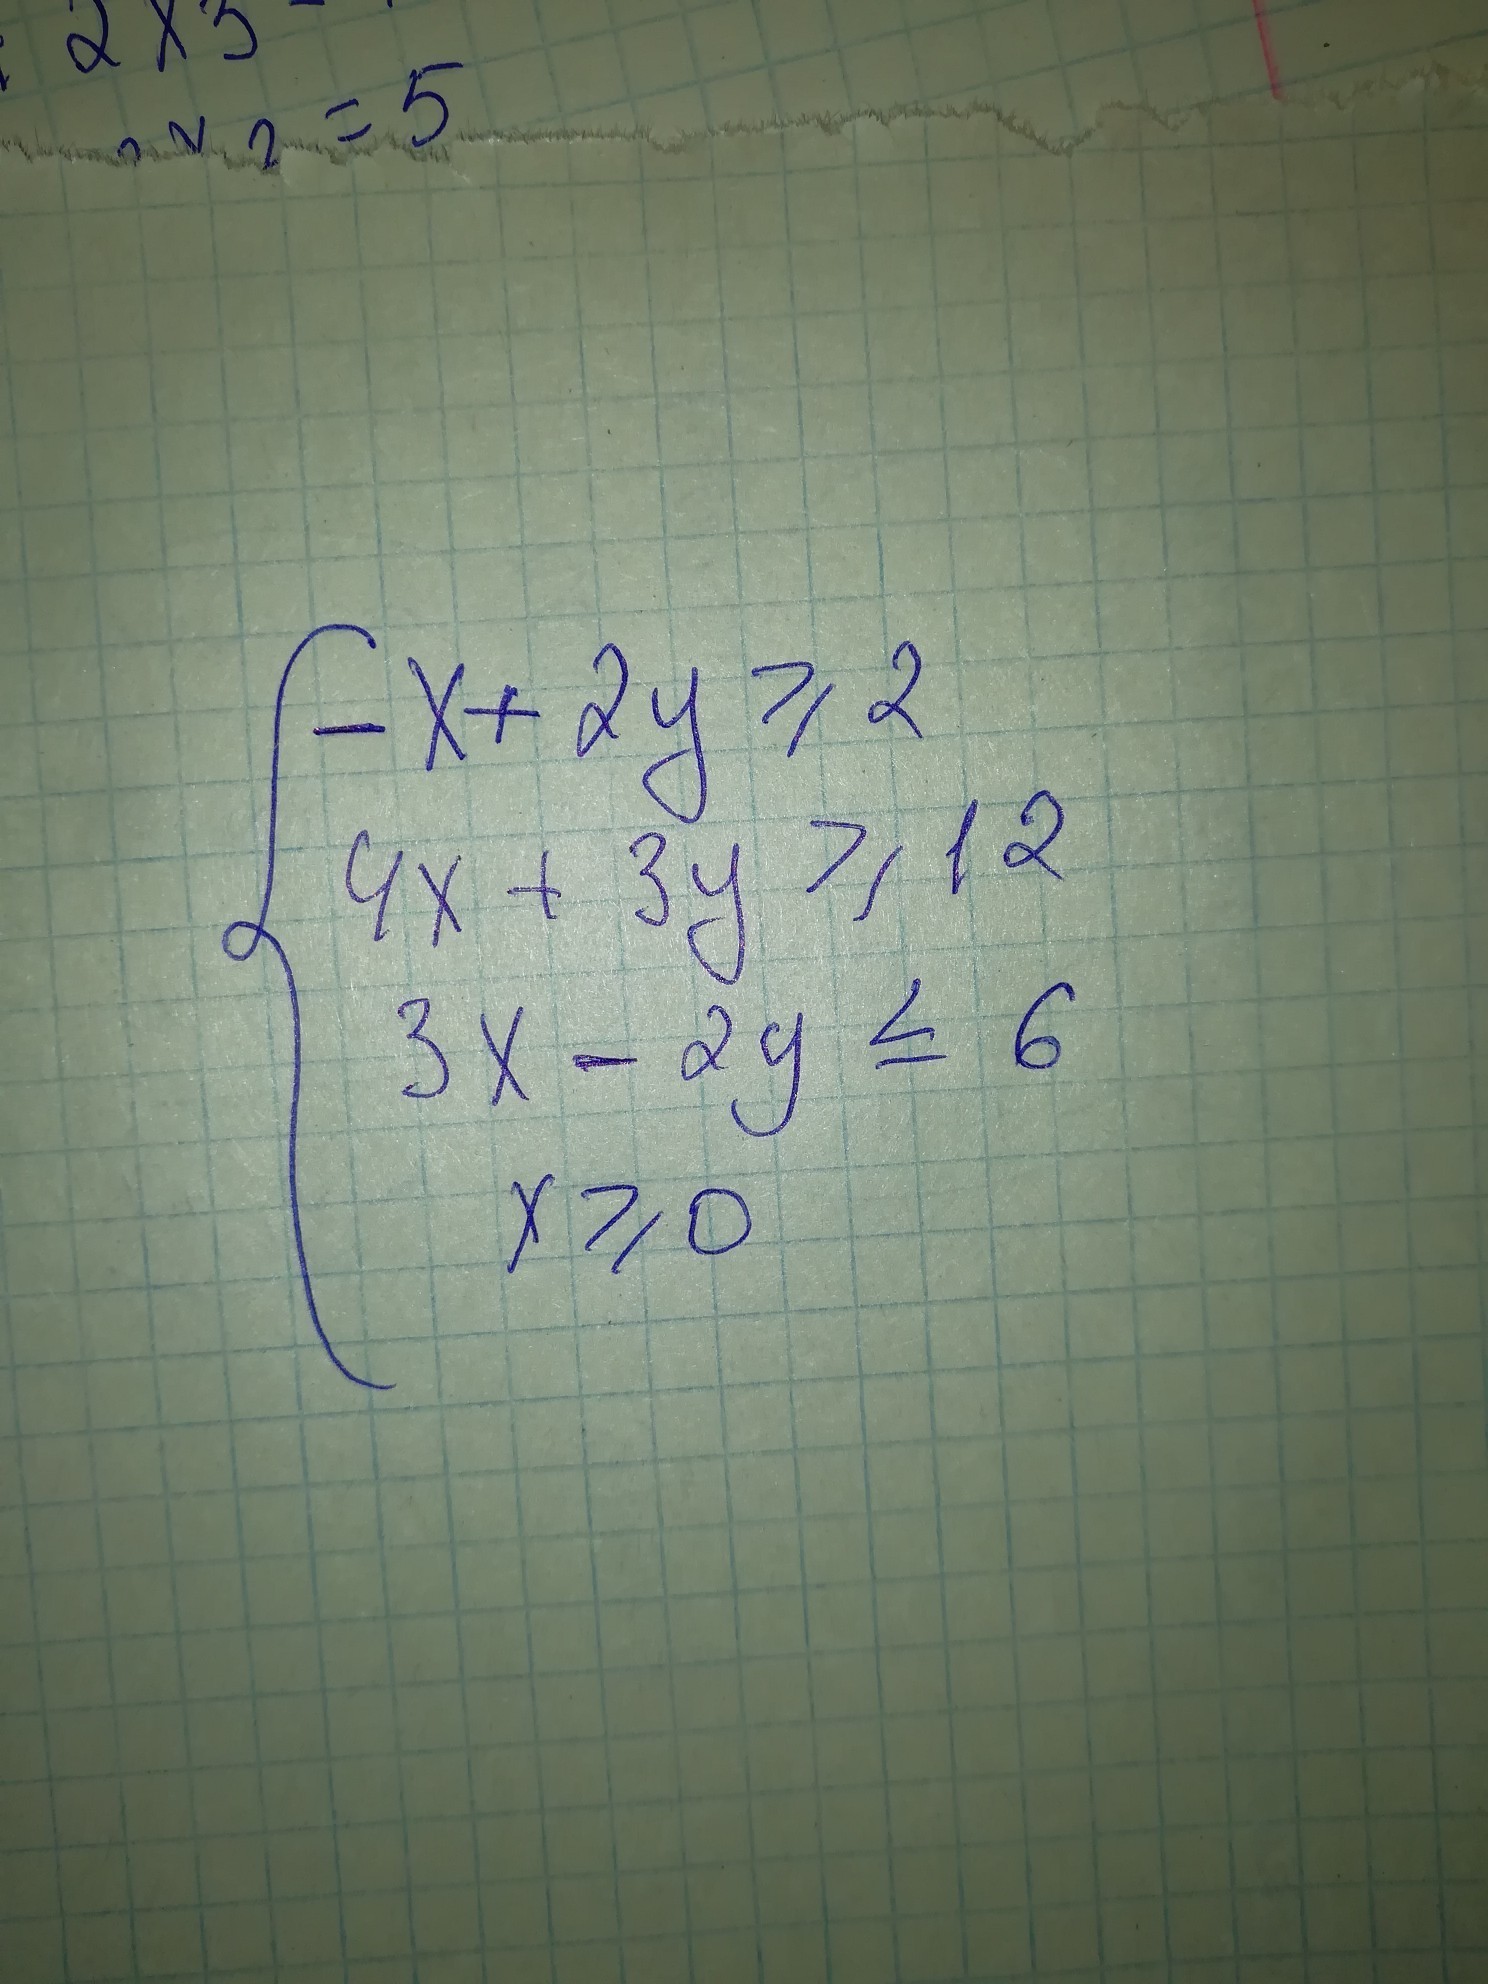 2x3
= 5
-x + 2y ⩾ 2
4x + 3y ⩾ 12
3x - 2y ≤ 6
x ⩾ 0